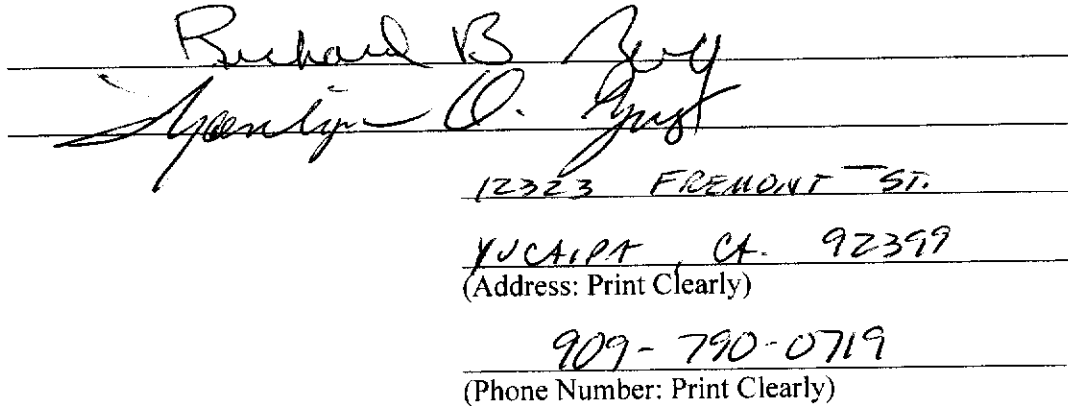 Richard B
O.
12323 FREMONT ST.
YUCAIPA, CA. 92399
(Address: Print Clearly)
909-790-0719
(Phone Number: Print Clearly)